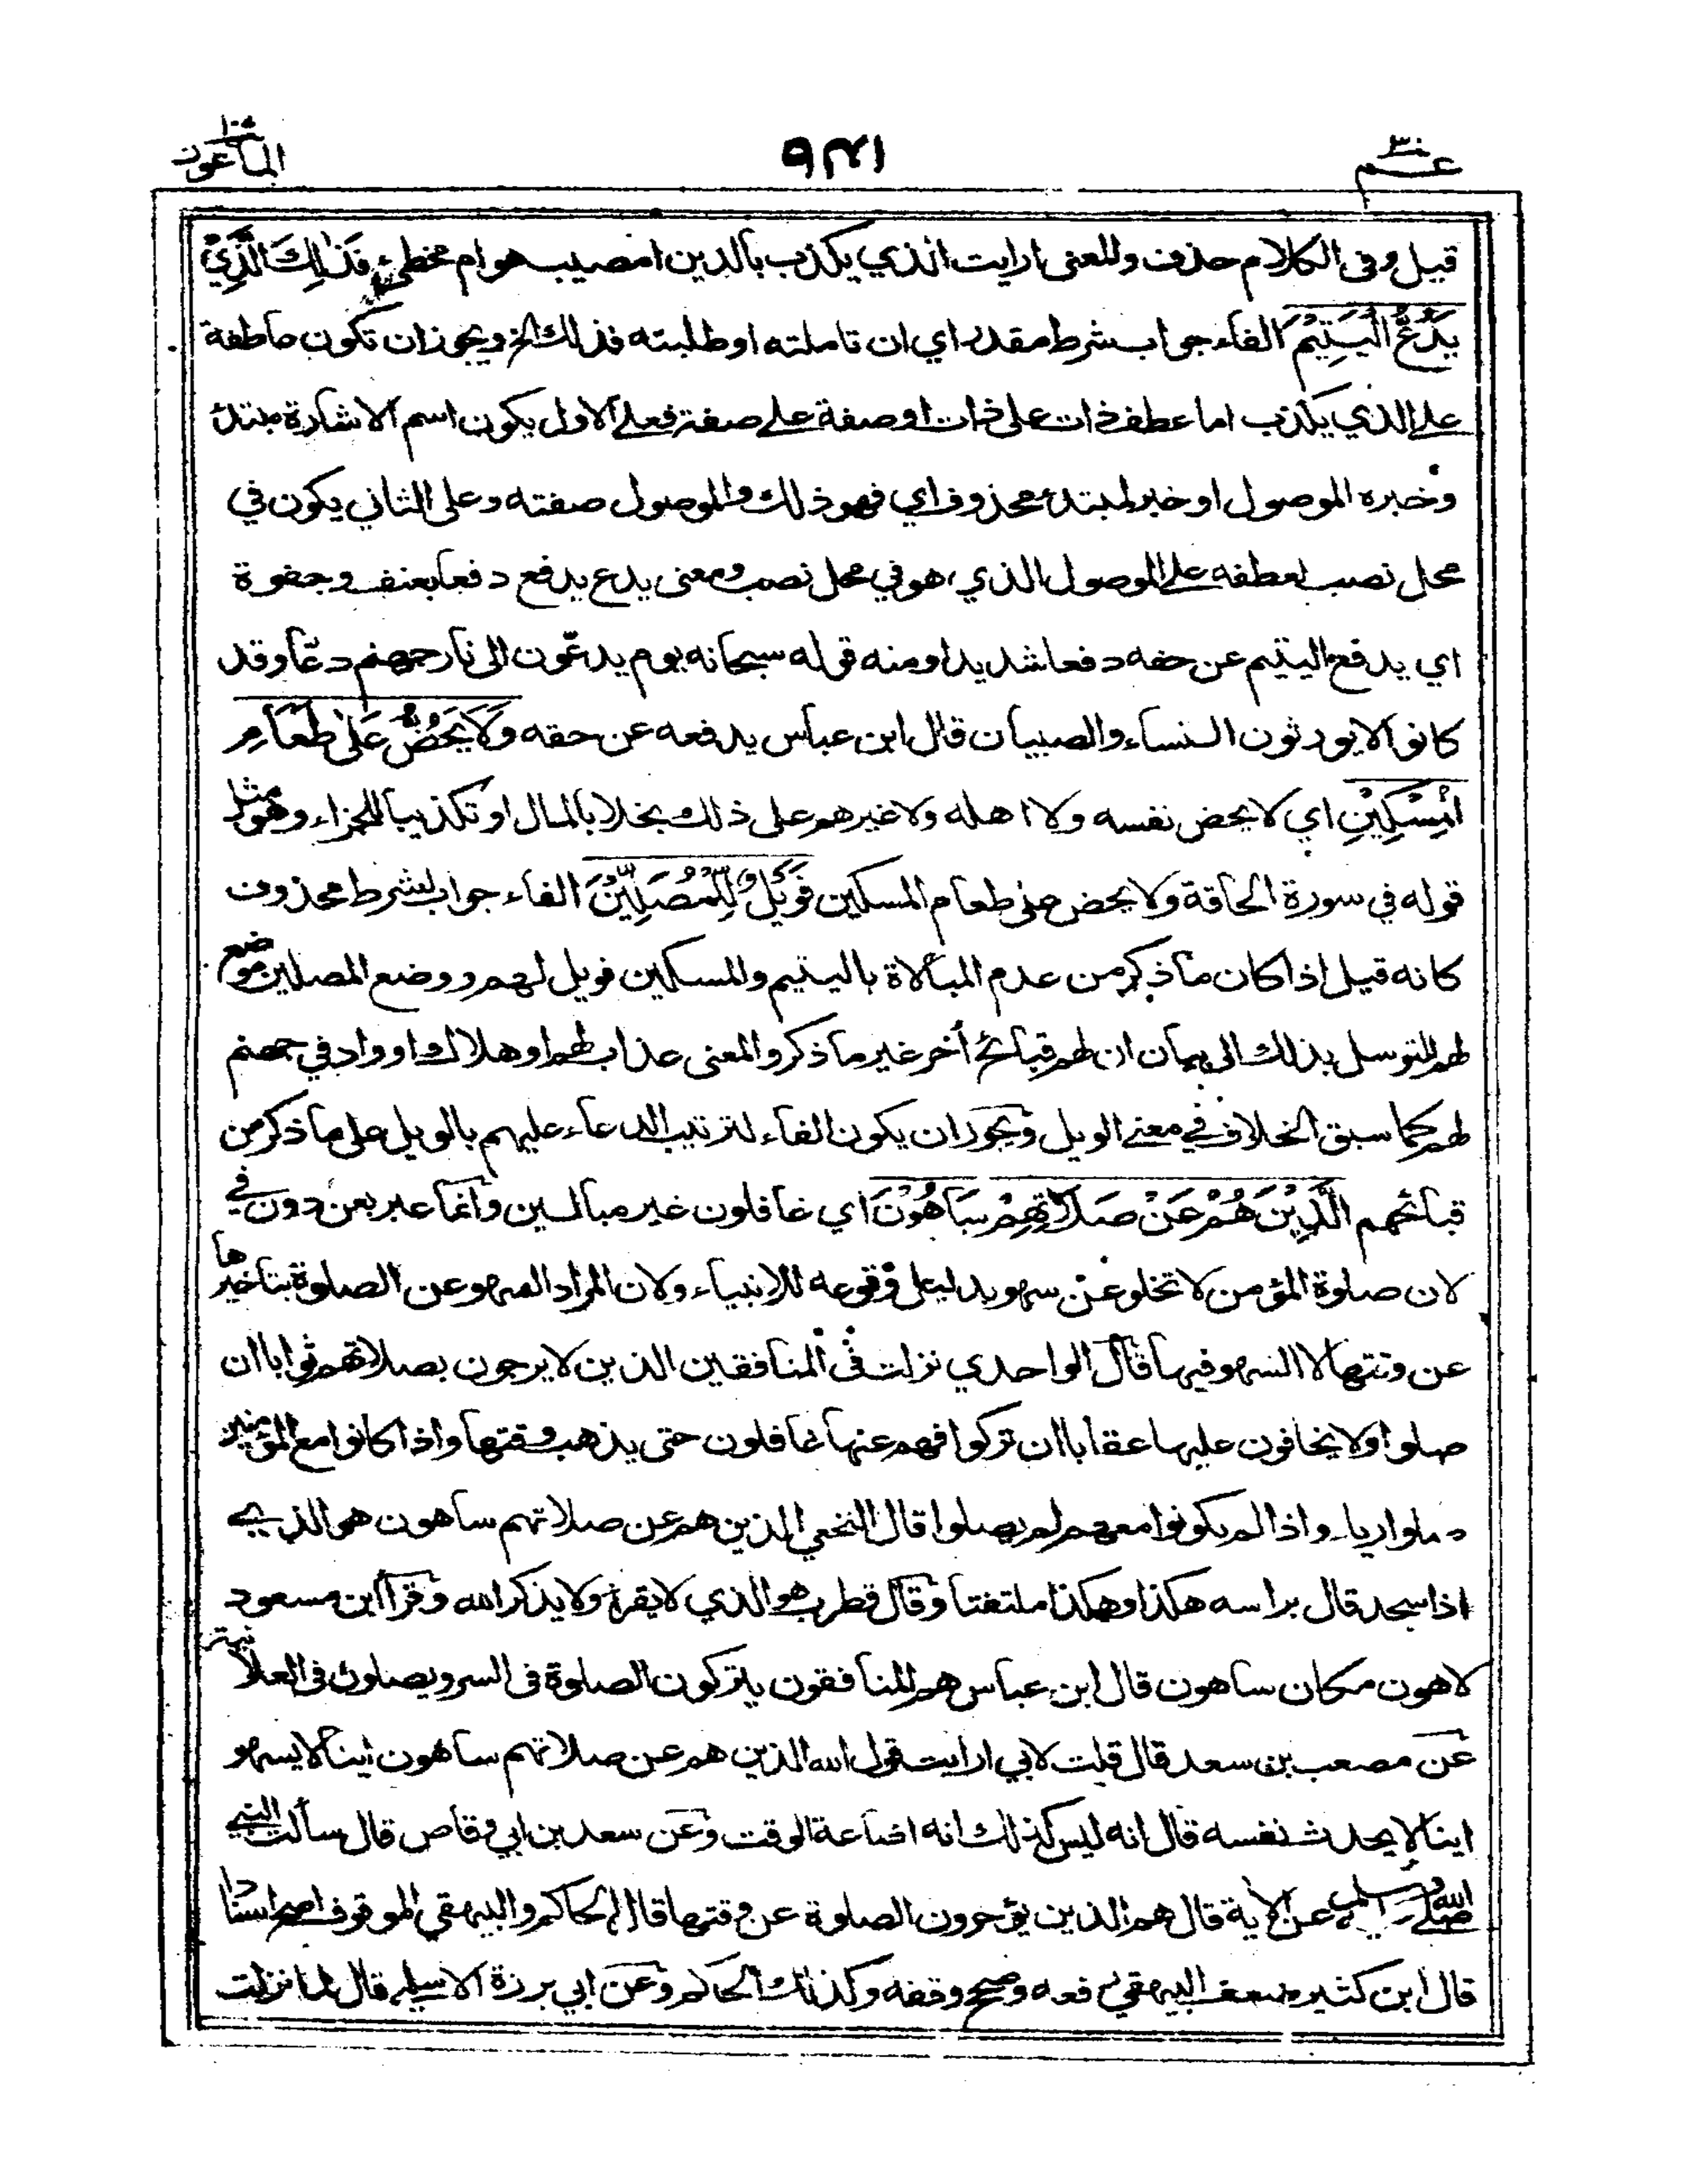 عم ٣٠
٩٣١
الماعون ١٠٧
قيل وفى الكلام حذف والمعنى ارايت الذي يكذب بالدين امصيب هو ام مخطئ فَذٰلِكَ الَّذِيْ
يَدُعُّ الْيَتِيْمَ الفاء جواب شرط مقدر اي ان تاملته او طلبته فذلك الخ ويجوز ان تكون عاطفة
على الذي يكذب اما عطف ذات على ذات او صفة على صفة فعلى الاول يكون اسم الاشارة مبتدئ
وخبره الموصول او خبر لمبتدء محذوف اي فهو ذلك والموصول صفته وعلى الثاني يكون في
محل نصب لعطفه على الموصول الذي هو في محل نصب ومعنى يدع يدفع دفعا بعنف وجفوة
اي يدفع اليتيم عن حقه دفعا شديدا ومنه قوله سبحانه يوم يدعّون الى نار جهنم دعّا وقد
كانوا لا يورثون النساء والصبيان قال ابن عباس يدفعه عن حقه وَلَا يَحُضُّ عَلٰى طَعَامِ
الْمِسْكِيْنِ اي لا يحض نفسه ولا اهله ولا غيرهم على ذلك بخلا بالمال او تكذيبا للجزاء وهو مثل
قوله في سورة الحاقة ولا يحض على طعام المسكين فَوَيْلٌ لِّلْمُصَلِّيْنَ الفاء جواب لشرط محذوف
كانه قيل اذا كان ما ذكر من عدم المبالاة باليتيم والمسكين فويل لهم ووضع المصلين موضع
لهم للتوسل بذلك الى بيان ان لهم قبائح أخر غير ما ذكر والمعنى عذاب لهم او هلاك او واد في جهنم
لهم كما سبق الخلاف في معنى الويل ويجوز ان يكون الفاء لترتيب الدعاء عليهم بالويل على ما ذكر من
قبائحهم الَّذِيْنَ هُمْ عَنْ صَلَاتِهِمْ سَاهُوْنَ اي غافلون غير مبالين وانما عبر بعن دون في
لان صلوة المؤمن لا تخلو عن سهو بدليل وقوعه للانبياء ولان المراد السهو عن الصلوة بتاخيرها
عن وقتها لا السهو فيها قال الواحدي نزلت في المنافقين الذين لا يرجون بصلاتهم ثوابا ان
صلوا ولا يخافون عليها عقابا ان تركوا فهم عنها غافلون حتى يذهب وقتها واذا كانوا مع المؤمنين
صلوا رياء واذا لم يكونوا معهم لم يصلوا قال النخعي الذين هم عن صلاتهم ساهون هو الذي
اذا سجد قال براسه هكذا وهكذا ملتفتا وقال قطرب هو الذي لا يقرء ولا يذكر الله وقرأ ابن مسعود
لاهون مكان ساهون قال ابن عباس هم المنافقون يتركون الصلوة فى السر ويصلون فى العلانية
عن مصعب بن سعد قال قلت لابي ارايت قول الله الذين هم عن صلاتهم ساهون اينا لا يسهو
اينا لا يحدث نفسه قال انه ليس كذلك انه اضاعة الوقت وعن سعد بن ابي وقاص قال سألت النبي
صلى الله وسلم عن الآية قال هم الذين يؤخرون الصلوة عن وقتها قال الحاكم والبيهقي الموقوف اصح اسنادا
قال ابن كثير ضعف البيهقي رفعه وصحح وقفه وكذلك الحاكم وعن ابي برزة الاسلمي قال لما نزلت